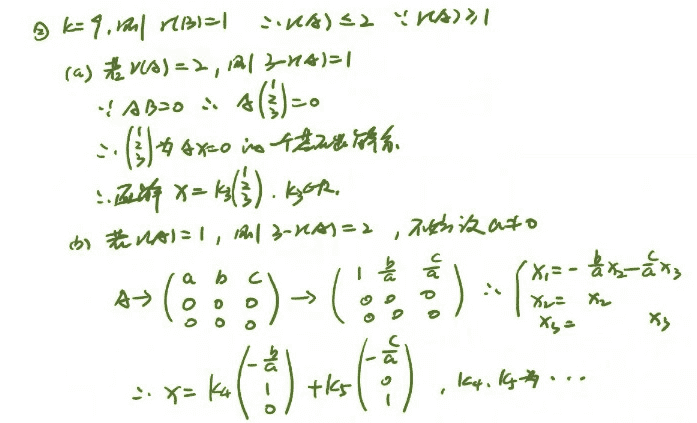 ② k=9, 则 r(B)=1 ∴ r(A)≤2 ∵ r(A)≥1
(a) 若 r(A)=2, 则 3-r(A)=1
∵ AB=0 ∴ A(1 2 3)=0
∴ (1 2 3) 为 AX=0 的一个基础解系.
∴ 通解 X=k₃(1 2 3). k₃∈R.
(b) 若 r(A)=1, 则 3-r(A)=2, 不妨设 a≠0
A→(a b c; 0 0 0; 0 0 0)→(1 b/a c/a; 0 0 0; 0 0 0) ∴ {x₁=-b/a x₂-c/a x₃
x₂= x₂
x₃= x₃
∴ X=k₄(-b/a 1 0)+k₅(-c/a 0 1), k₄.k₅为...